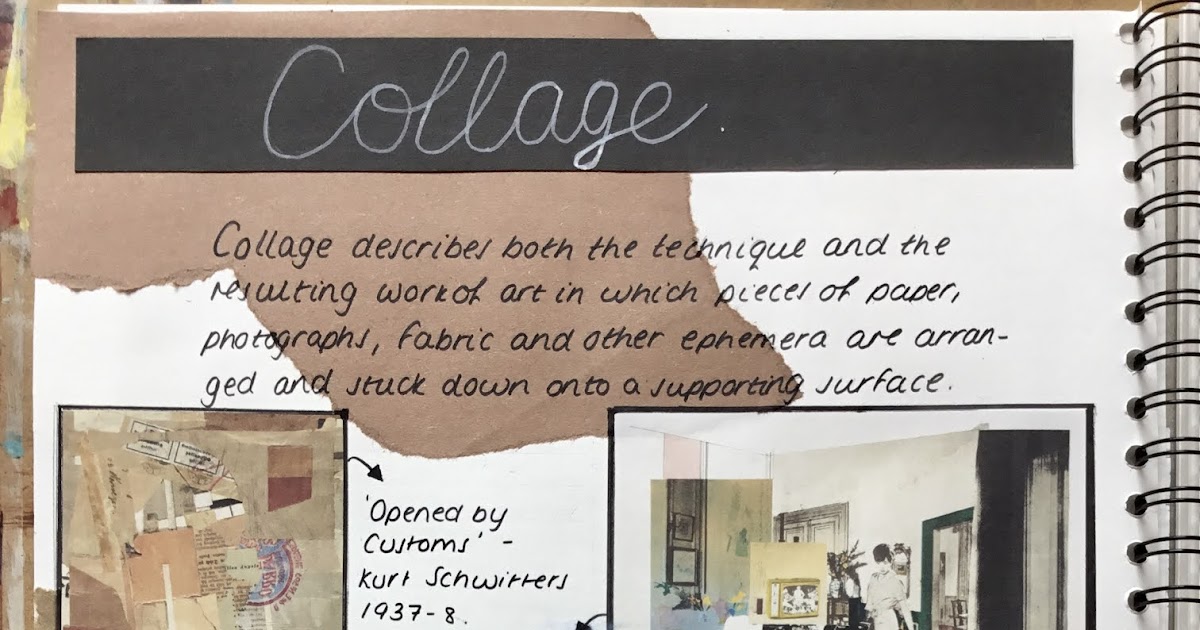 Collage
Collage describes both the technique and the
resulting work of art in which pieces of paper,
photographs, fabric and other ephemera are arran-
ged and stuck down onto a supporting surface.
'Opened by
Customs' -
Kurt Schwitters
1937-8.